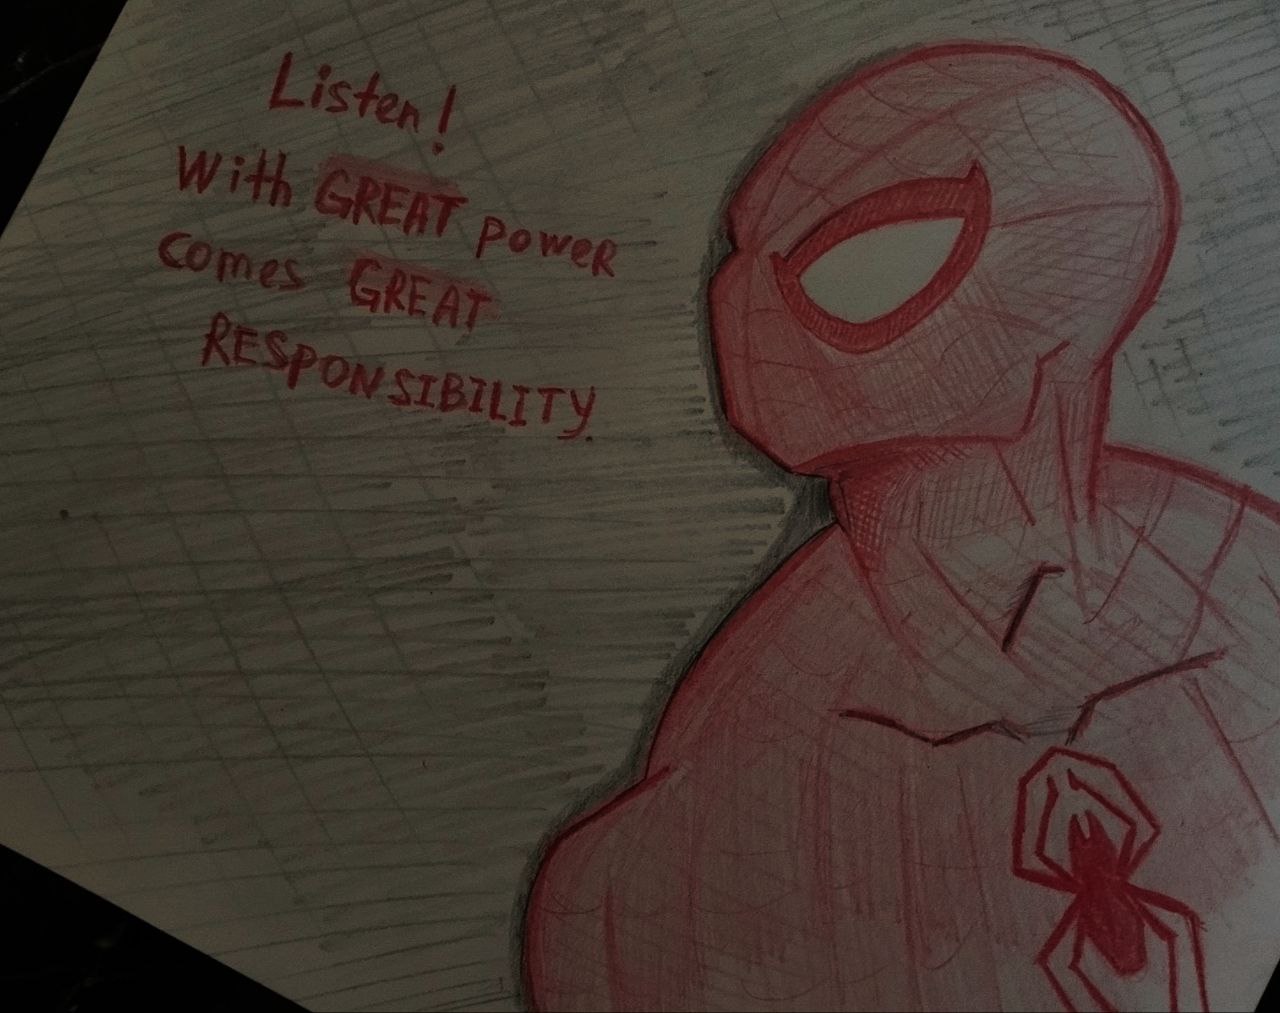 Listen!
With GREAT poweR
comes GREAT
RESPONSIBILITY.